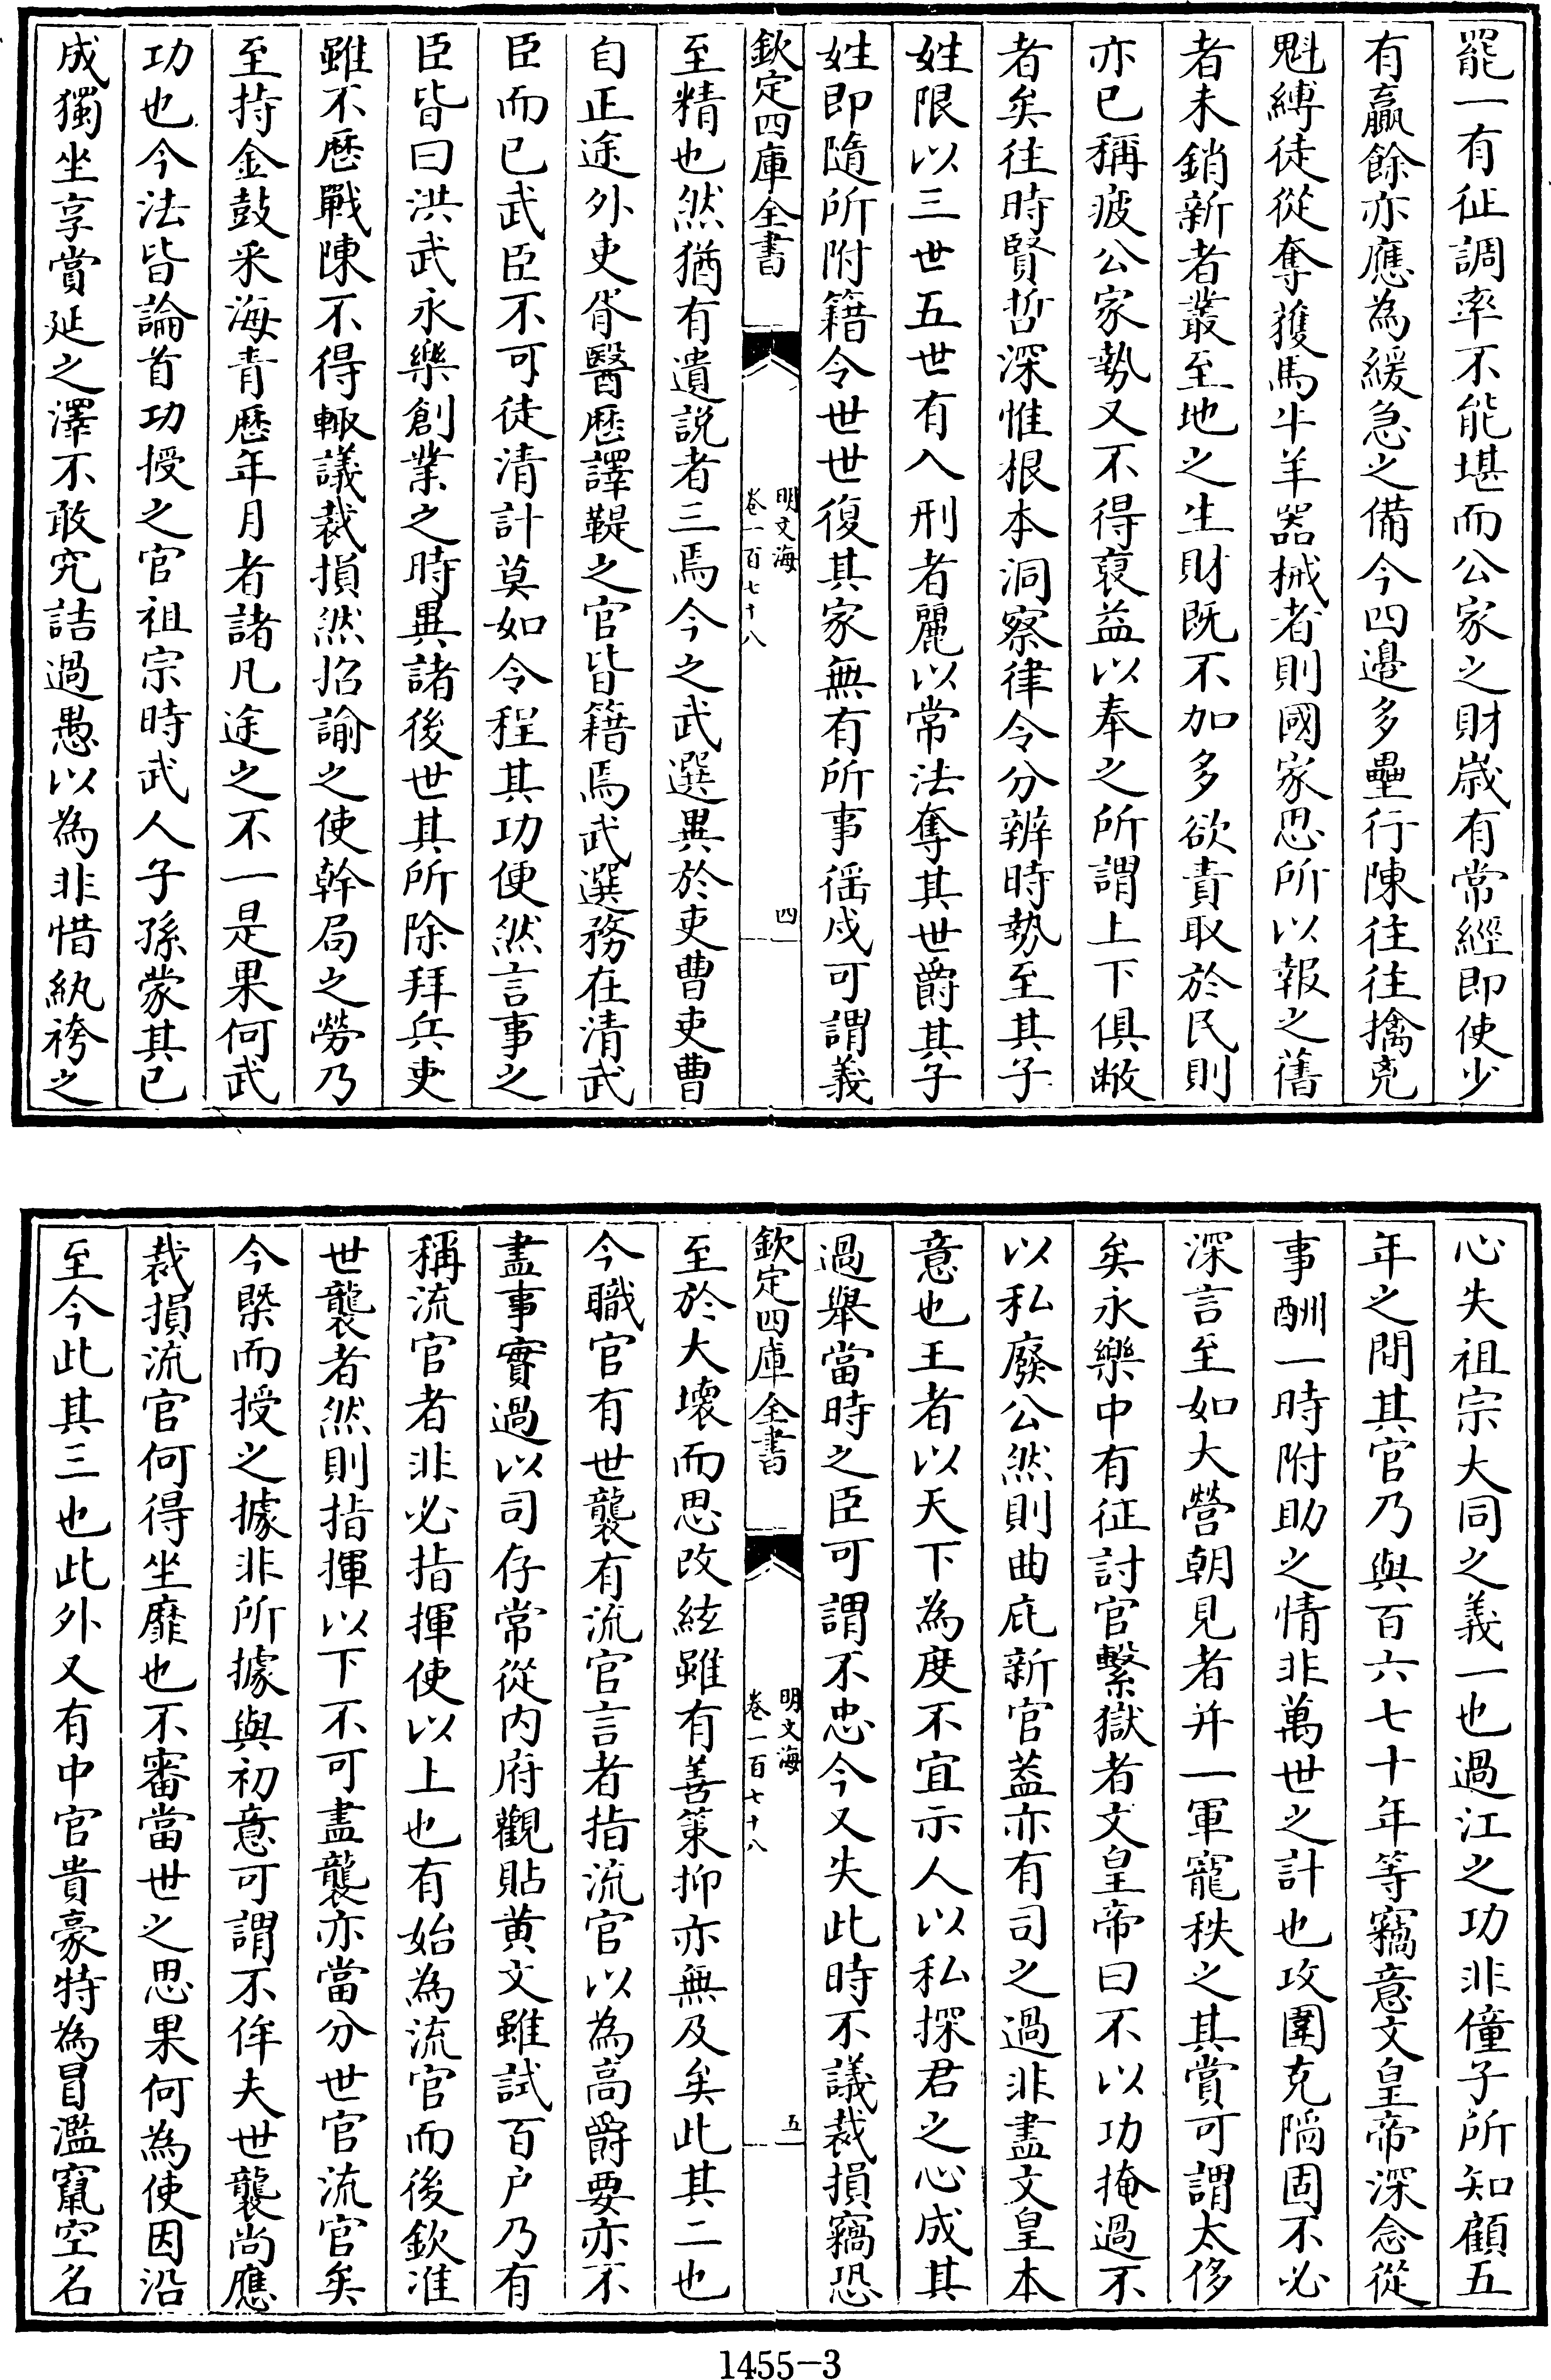 罷一有征調率不能堪而公家之財歳有常經即使少
有贏餘亦應為緩急之備今四邊多壘行陳往往擒克
魁縛徒從奪獲馬牛羊器械者則國家思所以報之舊
者未銷新者叢至地之生財既不加多欲責取於民則
亦已稱疲公家勢又不得裒益以奉之所謂上下俱敝
者矣往時賢哲深惟根本洞察律令分辨時勢至其子
姓限以三世五世有入刑者麗以常法奪其世爵其子
姓即隨所附籍令世世復其家無有所事徭戍可謂義
欽定四庫全書
明文海
卷一百七十八
四
至精也然猶有遺説者三焉今之武選異於吏曹吏曹
自正途外吏胥醫歷譯鞮之官皆籍焉武選務在清武
臣而已武臣不可徒清計莫如令程其功便然言事之
臣皆曰洪武永樂創業之時異諸後世其所除拜兵吏
雖不歷戰陳不得輙議裁損然招諭之使幹局之勞乃
至持金鼓采海青歷年月者諸凡途之不一是果何武
功也今法皆論首功授之官祖宗時武人子孫蒙其已
成獨坐享賞延之澤不敢究詰過愚以為非惜紈袴之
心失祖宗大同之義一也過江之功非僮子所知顧五
年之間其官乃與百六七十年等竊意文皇帝深念從
事酬一時附助之情非萬世之計也攻圍克陷固不必
深言至如大營朝見者并一軍寵秩之其賞可謂太侈
矣永樂中有征討官繫獄者文皇帝曰不以功掩過不
以私廢公然則曲庇新官葢亦有司之過非盡文皇本
意也王者以天下為度不宜示人以私探君之心成其
過舉當時之臣可謂不忠今又失此時不議裁損竊恐
欽定四庫全書
明文海
卷一百七十八
五
至於大壞而思改絃雖有善策抑亦無及矣此其二也
今職官有世襲有流官言者指流官以為高爵要亦不
盡事實過以司存常從内府觀貼黄文雖試百户乃有
稱流官者非必指揮使以上也有始為流官而後欽准
世襲者然則指揮以下不可盡襲亦當分世官流官矣
今槩而授之據非所據與初意可謂不侔夫世襲尚應
裁損流官何得坐靡也不審當世之思果何為使因沿
至今此其三也此外又有中官貴豪特為冒濫竄空名
1455-3